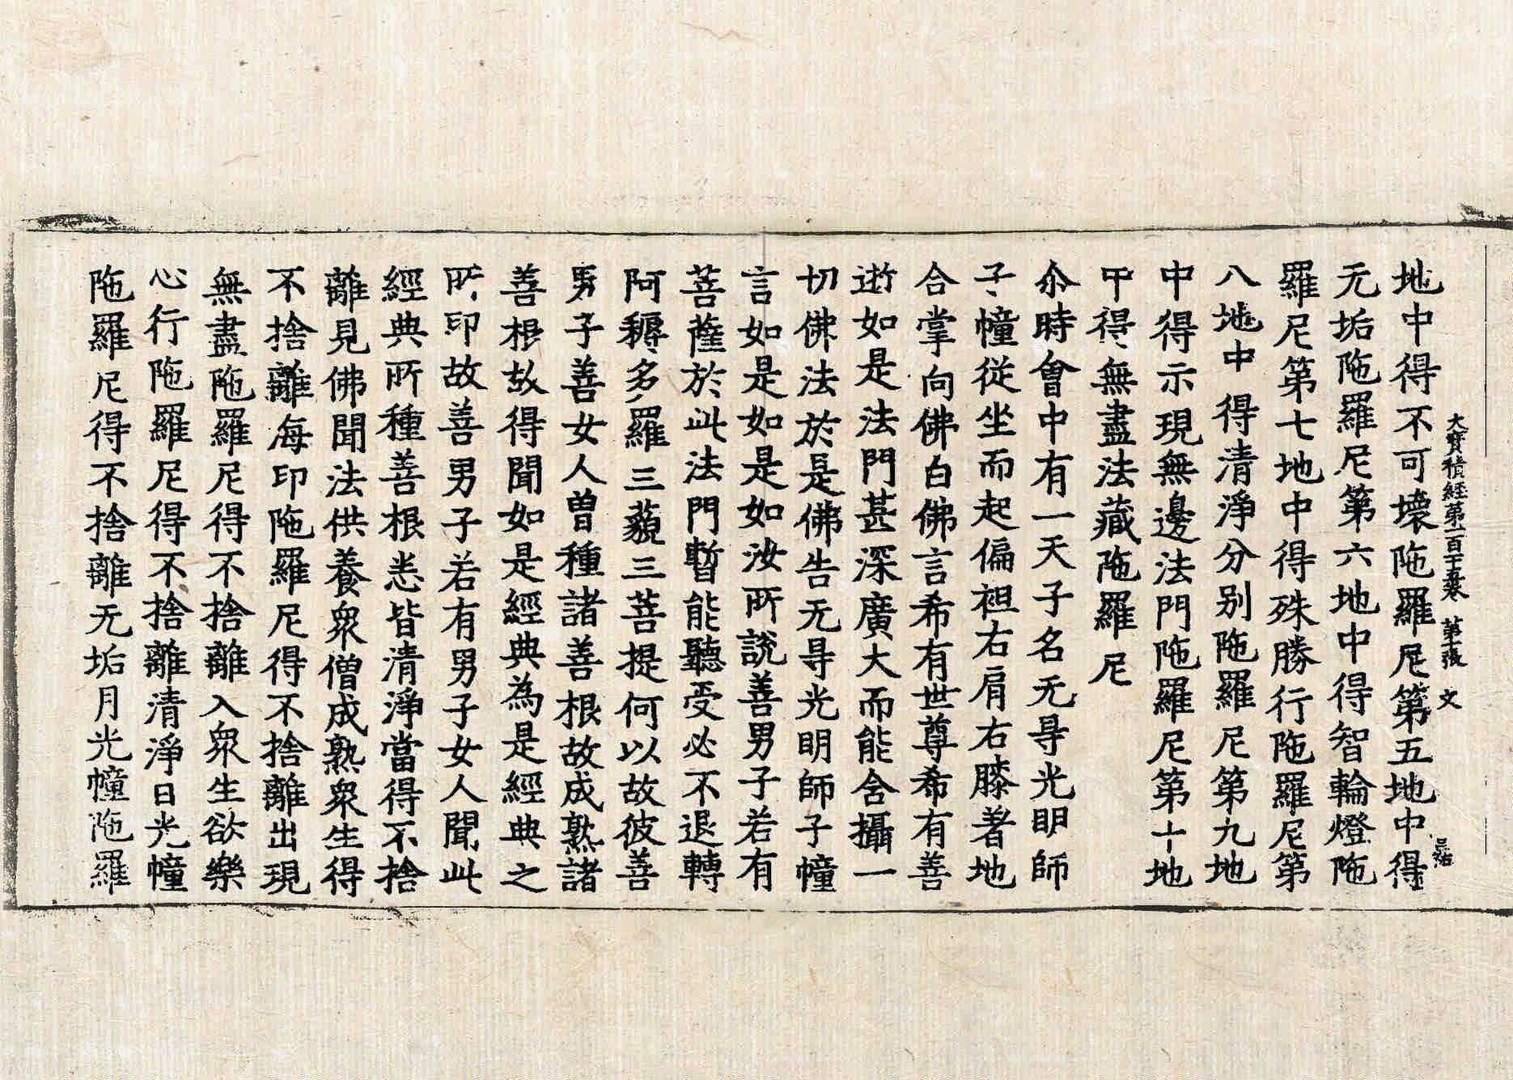 大寶積經第一百十五卷 第二張 文
地中得不可壞陁羅尼第五地中得
无垢陁羅尼第六地中得智輪燈陁
羅尼第七地中得殊勝行陁羅尼第
八地中得清淨分別陁羅尼第九地
中得示現無邊法門陁羅尼第十地
中得無盡法藏陁羅尼
尒時會中有一天子名无㝵光明師
子幢從坐而起偏袒右肩右膝著地
合掌向佛白佛言希有世尊希有善
逝如是法門甚深廣大而能含攝一
切佛法於是佛告无㝵光明師子幢
言如是如是如汝所說善男子若有
菩薩於此法門暫能聽受必不退轉
阿耨多羅三藐三菩提何以故彼善
男子善女人曽種諸善根故成熟諸
善根故得聞如是經典為是經典之
所印故善男子若有男子女人聞此
經典所種善根悉皆清淨當得不捨
離見佛聞法供養衆僧成熟衆生得
不捨離海印陁羅尼得不捨離出現
無盡陁羅尼得不捨離入衆生欲樂
心行陁羅尼得不捨離清淨日光幢
陁羅尼得不捨離无垢月光幢陁羅